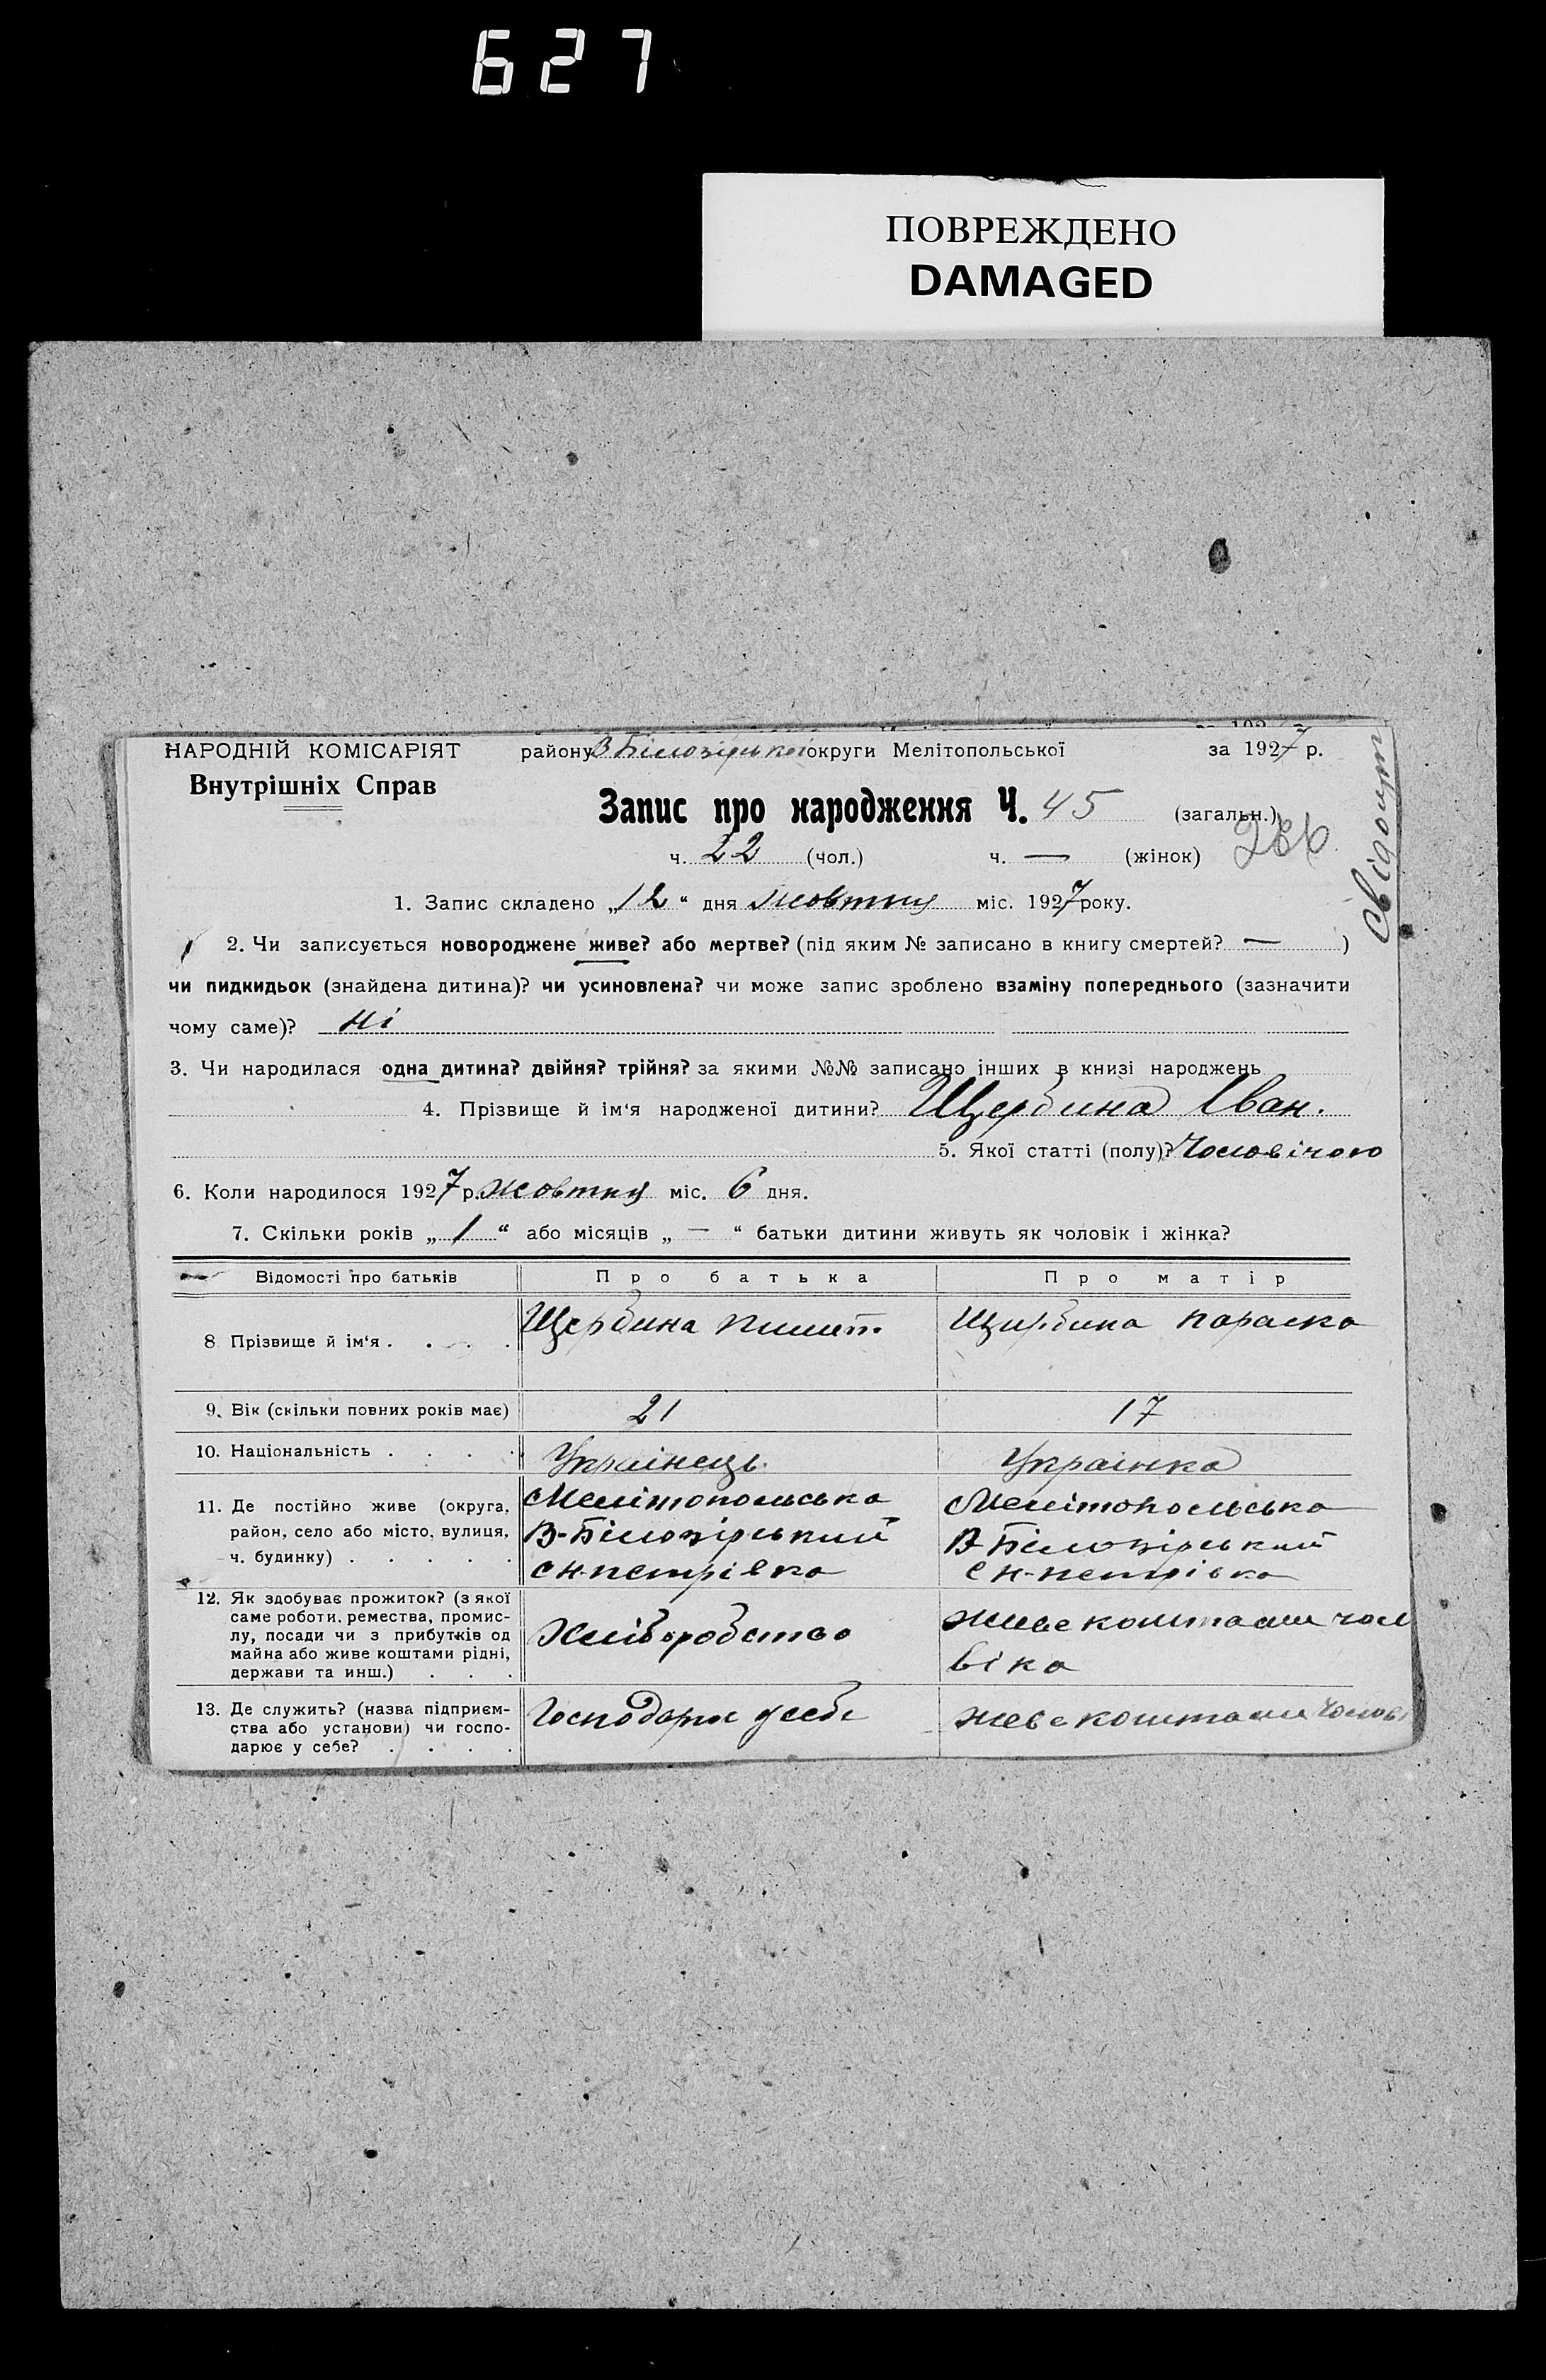 627
ПОВРЕЖДЕНО
DAMAGED
НАРОДНІЙ КОМІСАРІЯТ
Внутрішніх Справ
району В Білозірської округи Мелітопольської за 1927 р.
Запис про народження Ч. 45 (загальн.)
286
ч. 22 (чол.) ч. — (жінок)
Свідоцт
1. Запис складено „12“ дня жовтня міс. 1927 року.
2. Чи записується новороджене живе? або мертве? (під яким № записано в книгу смертей? — )
чи пидкидьок (знайдена дитина)? чи усиновлена? чи може запис зроблено взаміну попереднього (зазначити
чому саме)? ні
3. Чи народилася одна дитина? двійня? трійня? за якими №№ записано інших в книзі народжень
4. Прізвище й ім‘я народженої дитини? Щербина Іван.
5. Якої статті (полу)? Чоловічою
6. Коли народилося 1927 р. жовтня міс. 6 дня.
7. Скільки років „1“ або місяців „—“ батьки дитини живуть як чоловік і жінка?
Відомості про батьків
Про батька
Про матір
8 Прізвище й ім‘я . . . .
Щербина
Щирбина Параска
9. Вік (скільки повних років має)
21
17
10. Національність . . . .
Українець
Українка
11. Де постійно живе (округа,
район, село або місто, вулиця,
ч. будинку) . . . . .
Мелітопольська
В-Білозірський
с н-петрівка
Мелітопольська
В-Білозірський
с н-петрівка
12. Як здобуває прожиток? (з якої
саме роботи, ремества, промис-
лу, посади чи з прибутків од
майна або живе коштами рідні,
держави та инш.) . . .
Хліборобство
живе коштами чол
віка
13. Де служить? (назва підприєм-
ства або установи) чи госпо-
дарює у себе? . . . .
Господарює у себе
живе коштами Чолов